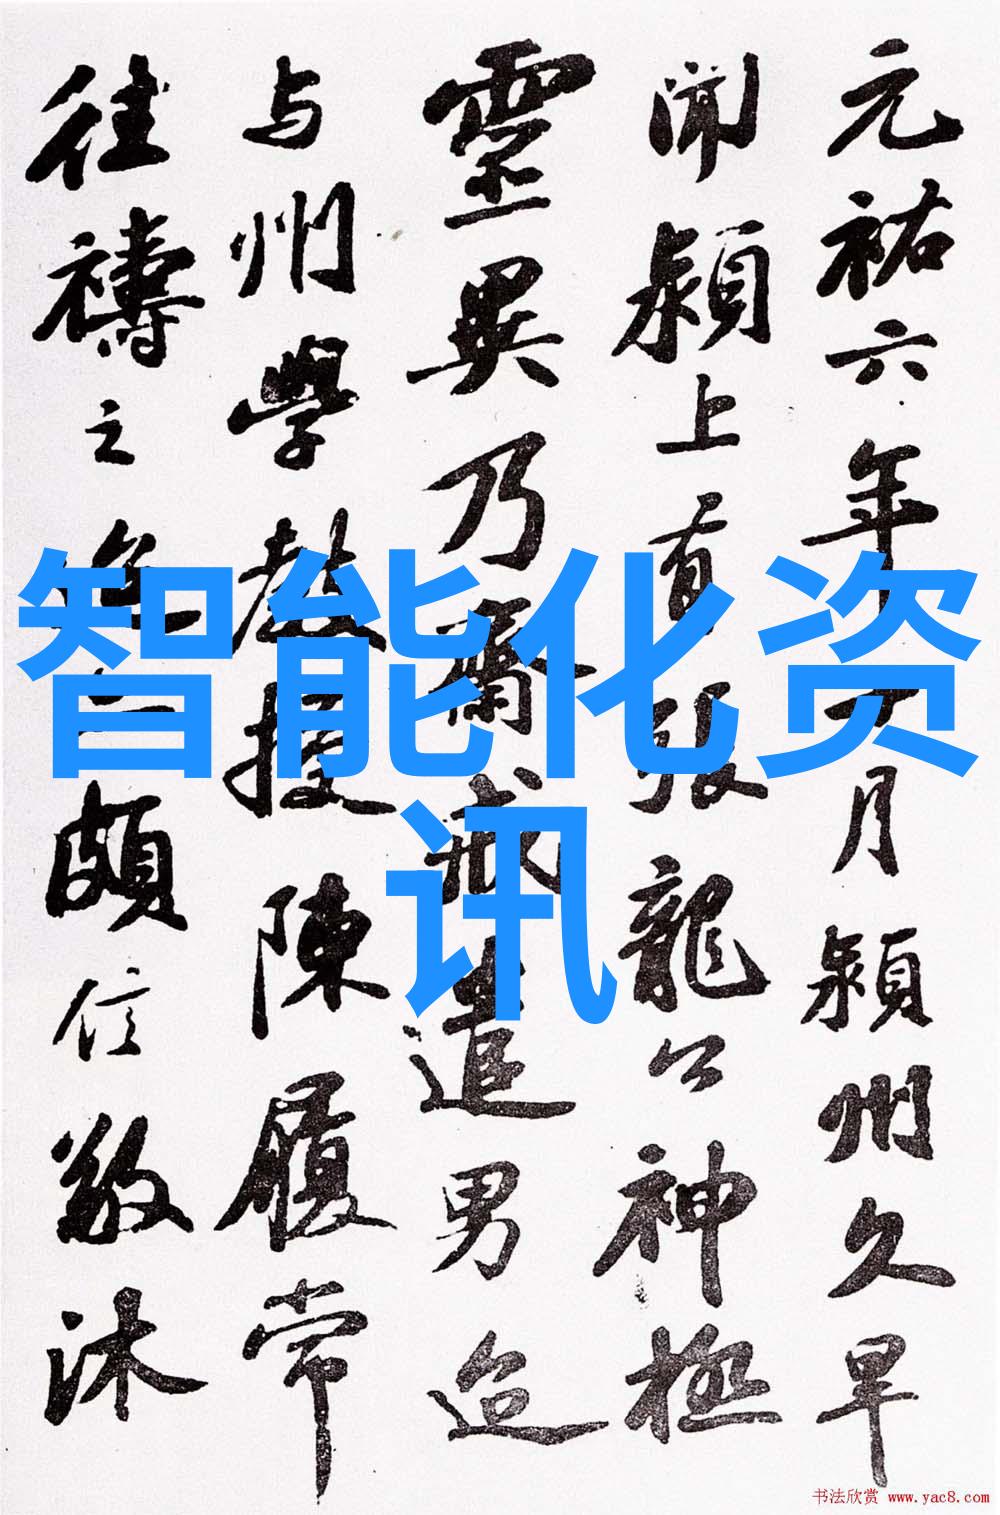 元祐六年十月潁州久旱
聞潁上有張龍公神極
靈異乃齋戒遣男迨
与州學教授陳履常
往禱之迨亦頗信敬沐
智能化资
讯
书法欣赏 www.yac8.com